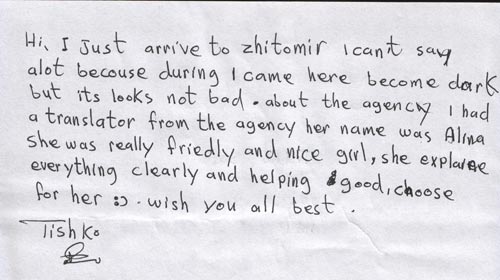 Hi, I Just arrive to zhitomir I cant say
alot becouse during I came here become dark
but its looks not bad. about the agency I had
a translator from the agency her name was Alina
She was really friedly and nice girl, she explaine
everything clearly and helping good, choose
for her :). wish you all best.
Tishko